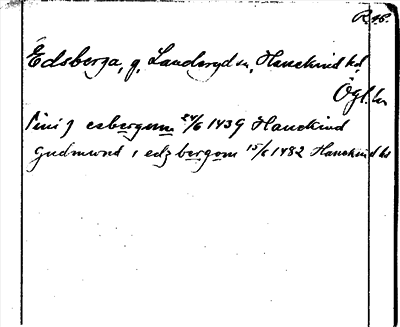 R.46.
Edsberga, g, Landeryd sn, Hanekind hd,
Ögl. ln
i esbergom 24/6 1439 Hanekind
Gudmund i edzbergom 15/6 1482 Hanekinds hd